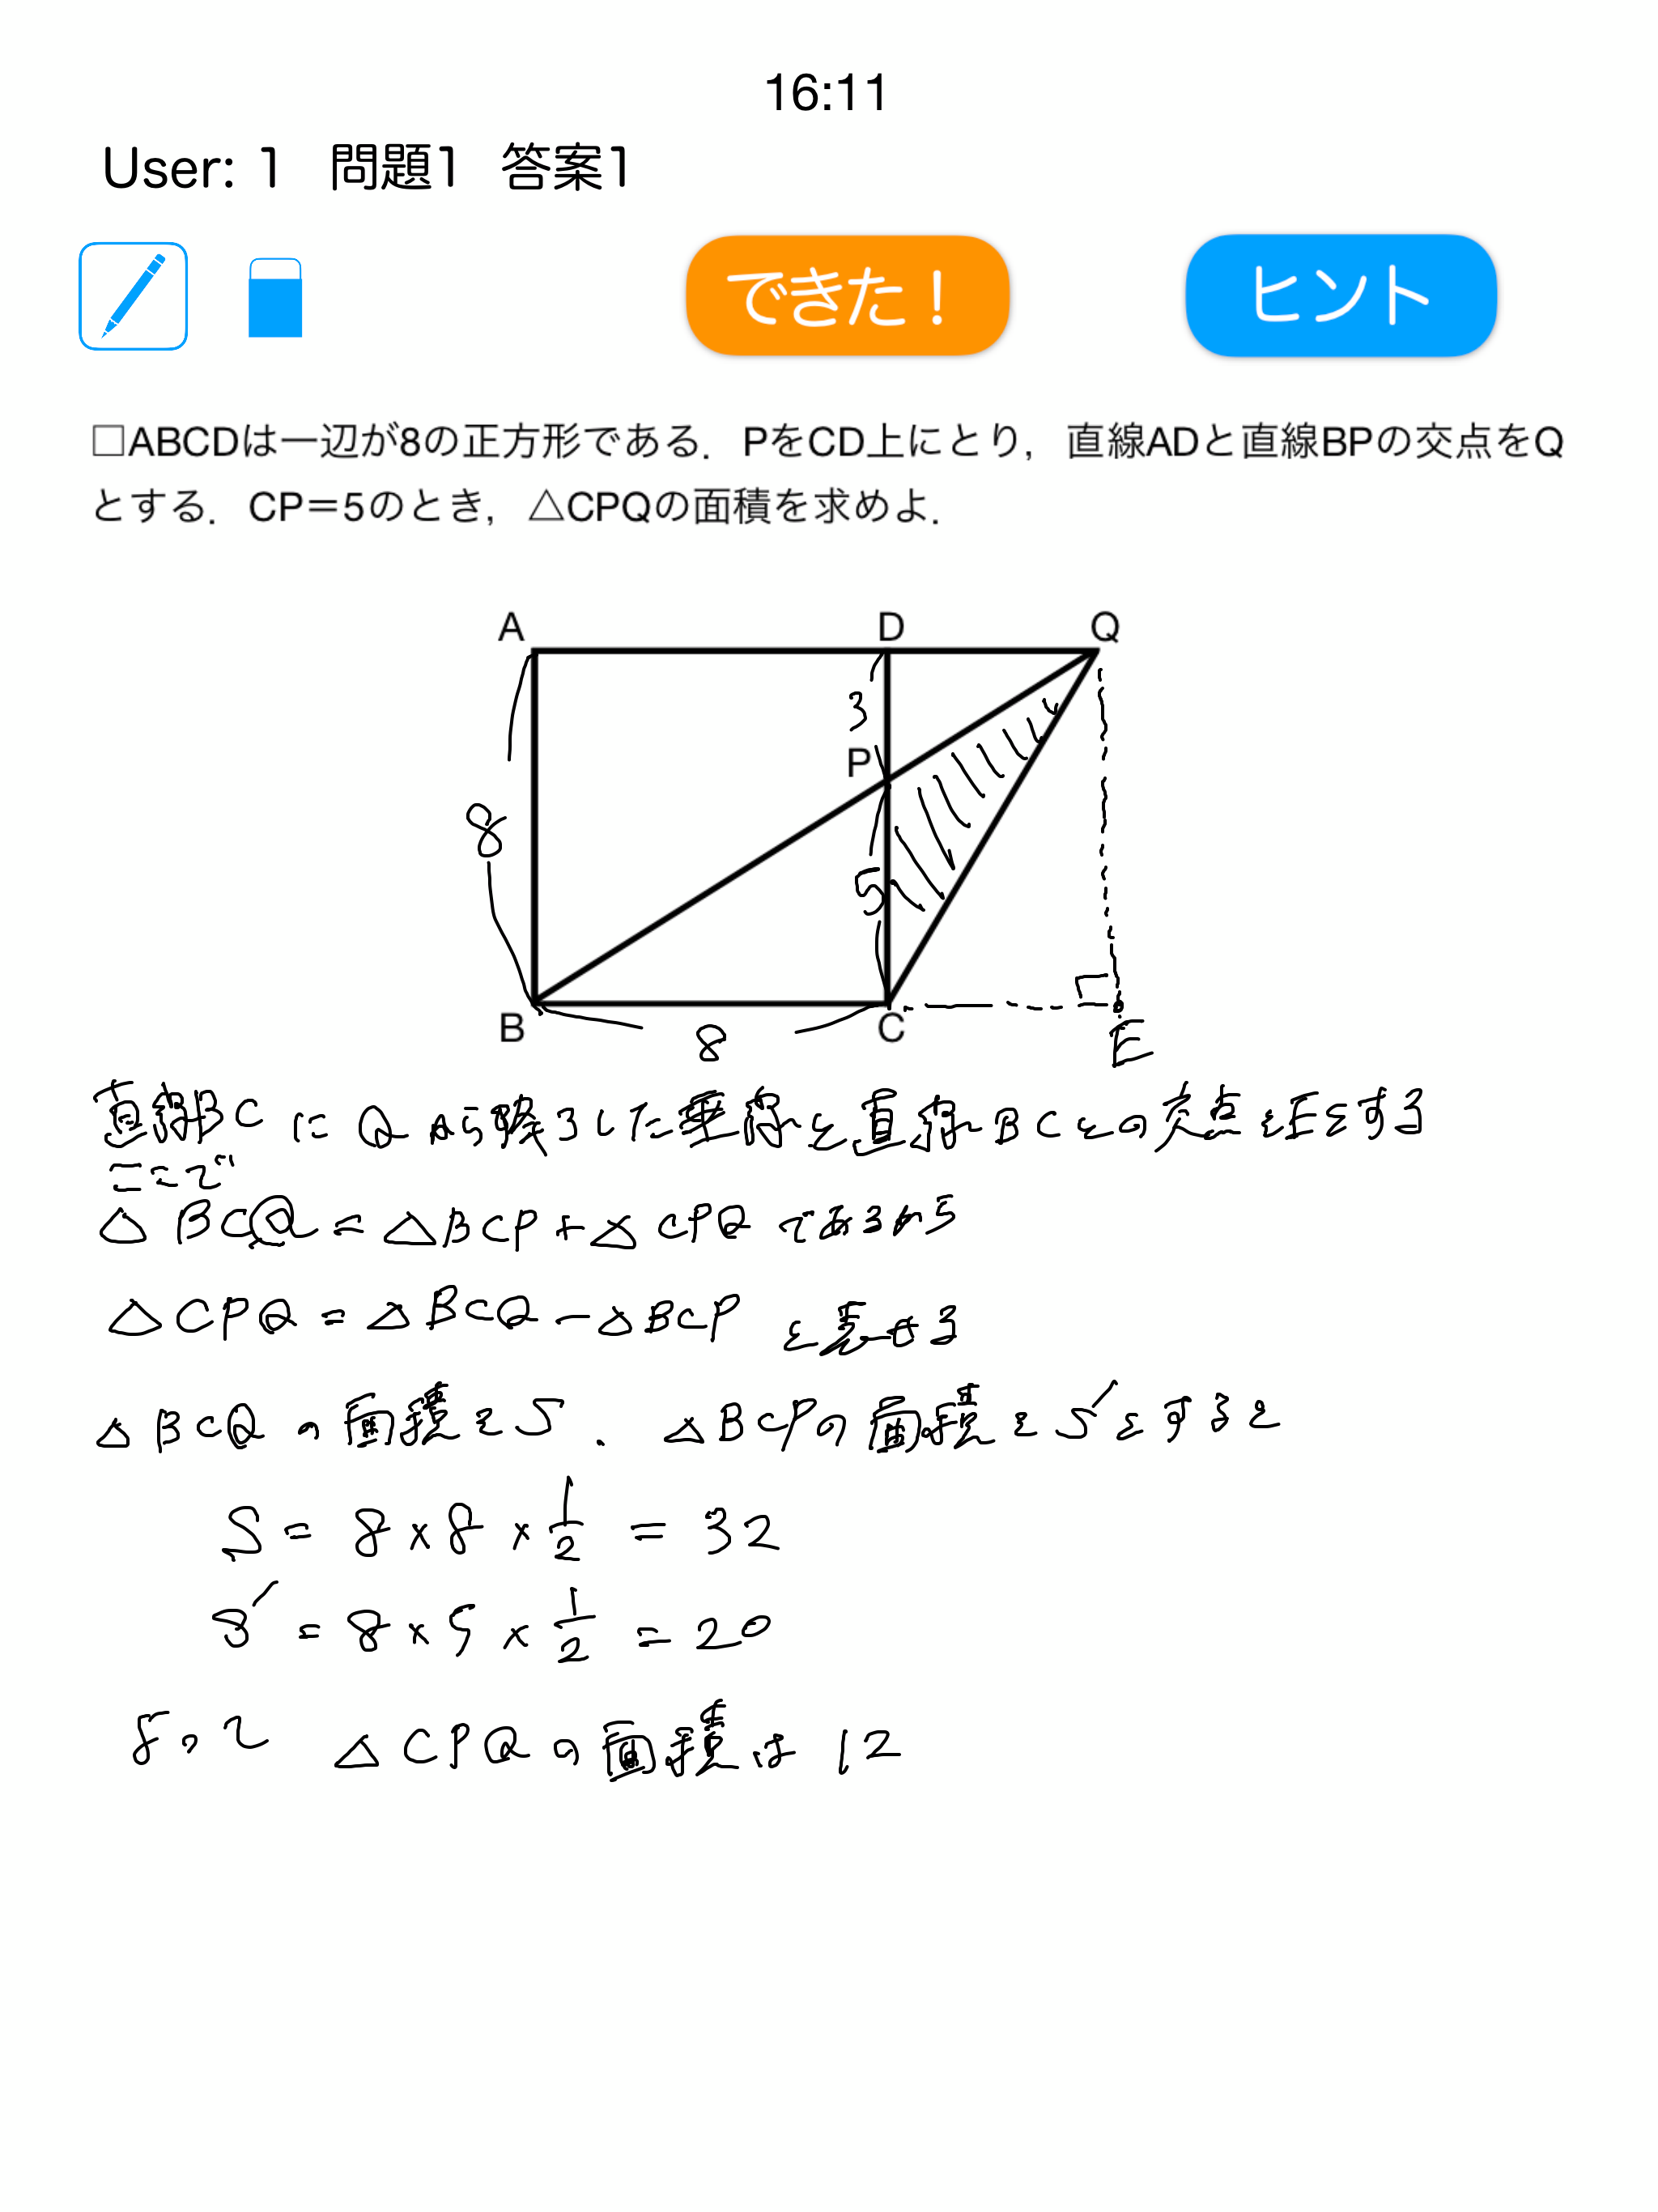 16:11
User: 1 問題1 答案1
できた！ ヒント
□ABCDは一辺が8の正方形である．PをCD上にとり，直線ADと直線BPの交点をQ
とする．CP＝5のとき，△CPQの面積を求めよ．
A D Q
3
P
8
5
B C
8
E
直線BCにQから降ろした垂線と直線BCとの交点をEとする
ここで
△BCQ=△BCP+△CPQであるから
△CPQ=△BCQ-△BCPと表せる
△BCQの面積をS、△BCPの面積をS'とすると
S=8×8×1/2=32
S'=8×5×1/2=20
よって △CPQの面積は12